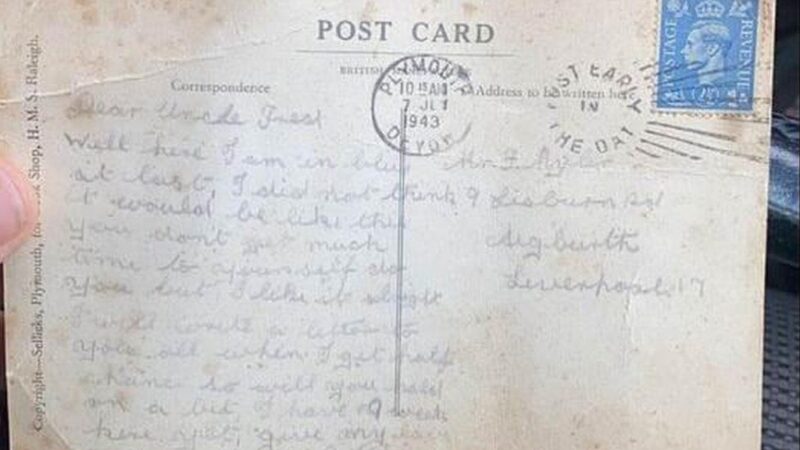 POST CARD
BRITISH
Correspondence
Address to be written here
PLYMOUTH
10 15 AM
7 JLY
1943
DEVON
POST EARLY
IN
THE DAY
POSTAGE
REVENUE
Copyright—Sellicks, Plymouth, for Shop, H.M.S. Raleigh.
Dear Uncle Fred
Well here I am in blue
at last, I did not think
it would be like this
you don't get much
time to yourself do
you but I like it alright
I will write a letter to
you all when I get half
a chance so will you hold
on a bit, I have 9 weeks
here yet, give my love
Mr F. Ryder
9 Lisburn Rd
Aigburth
Liverpool. 17